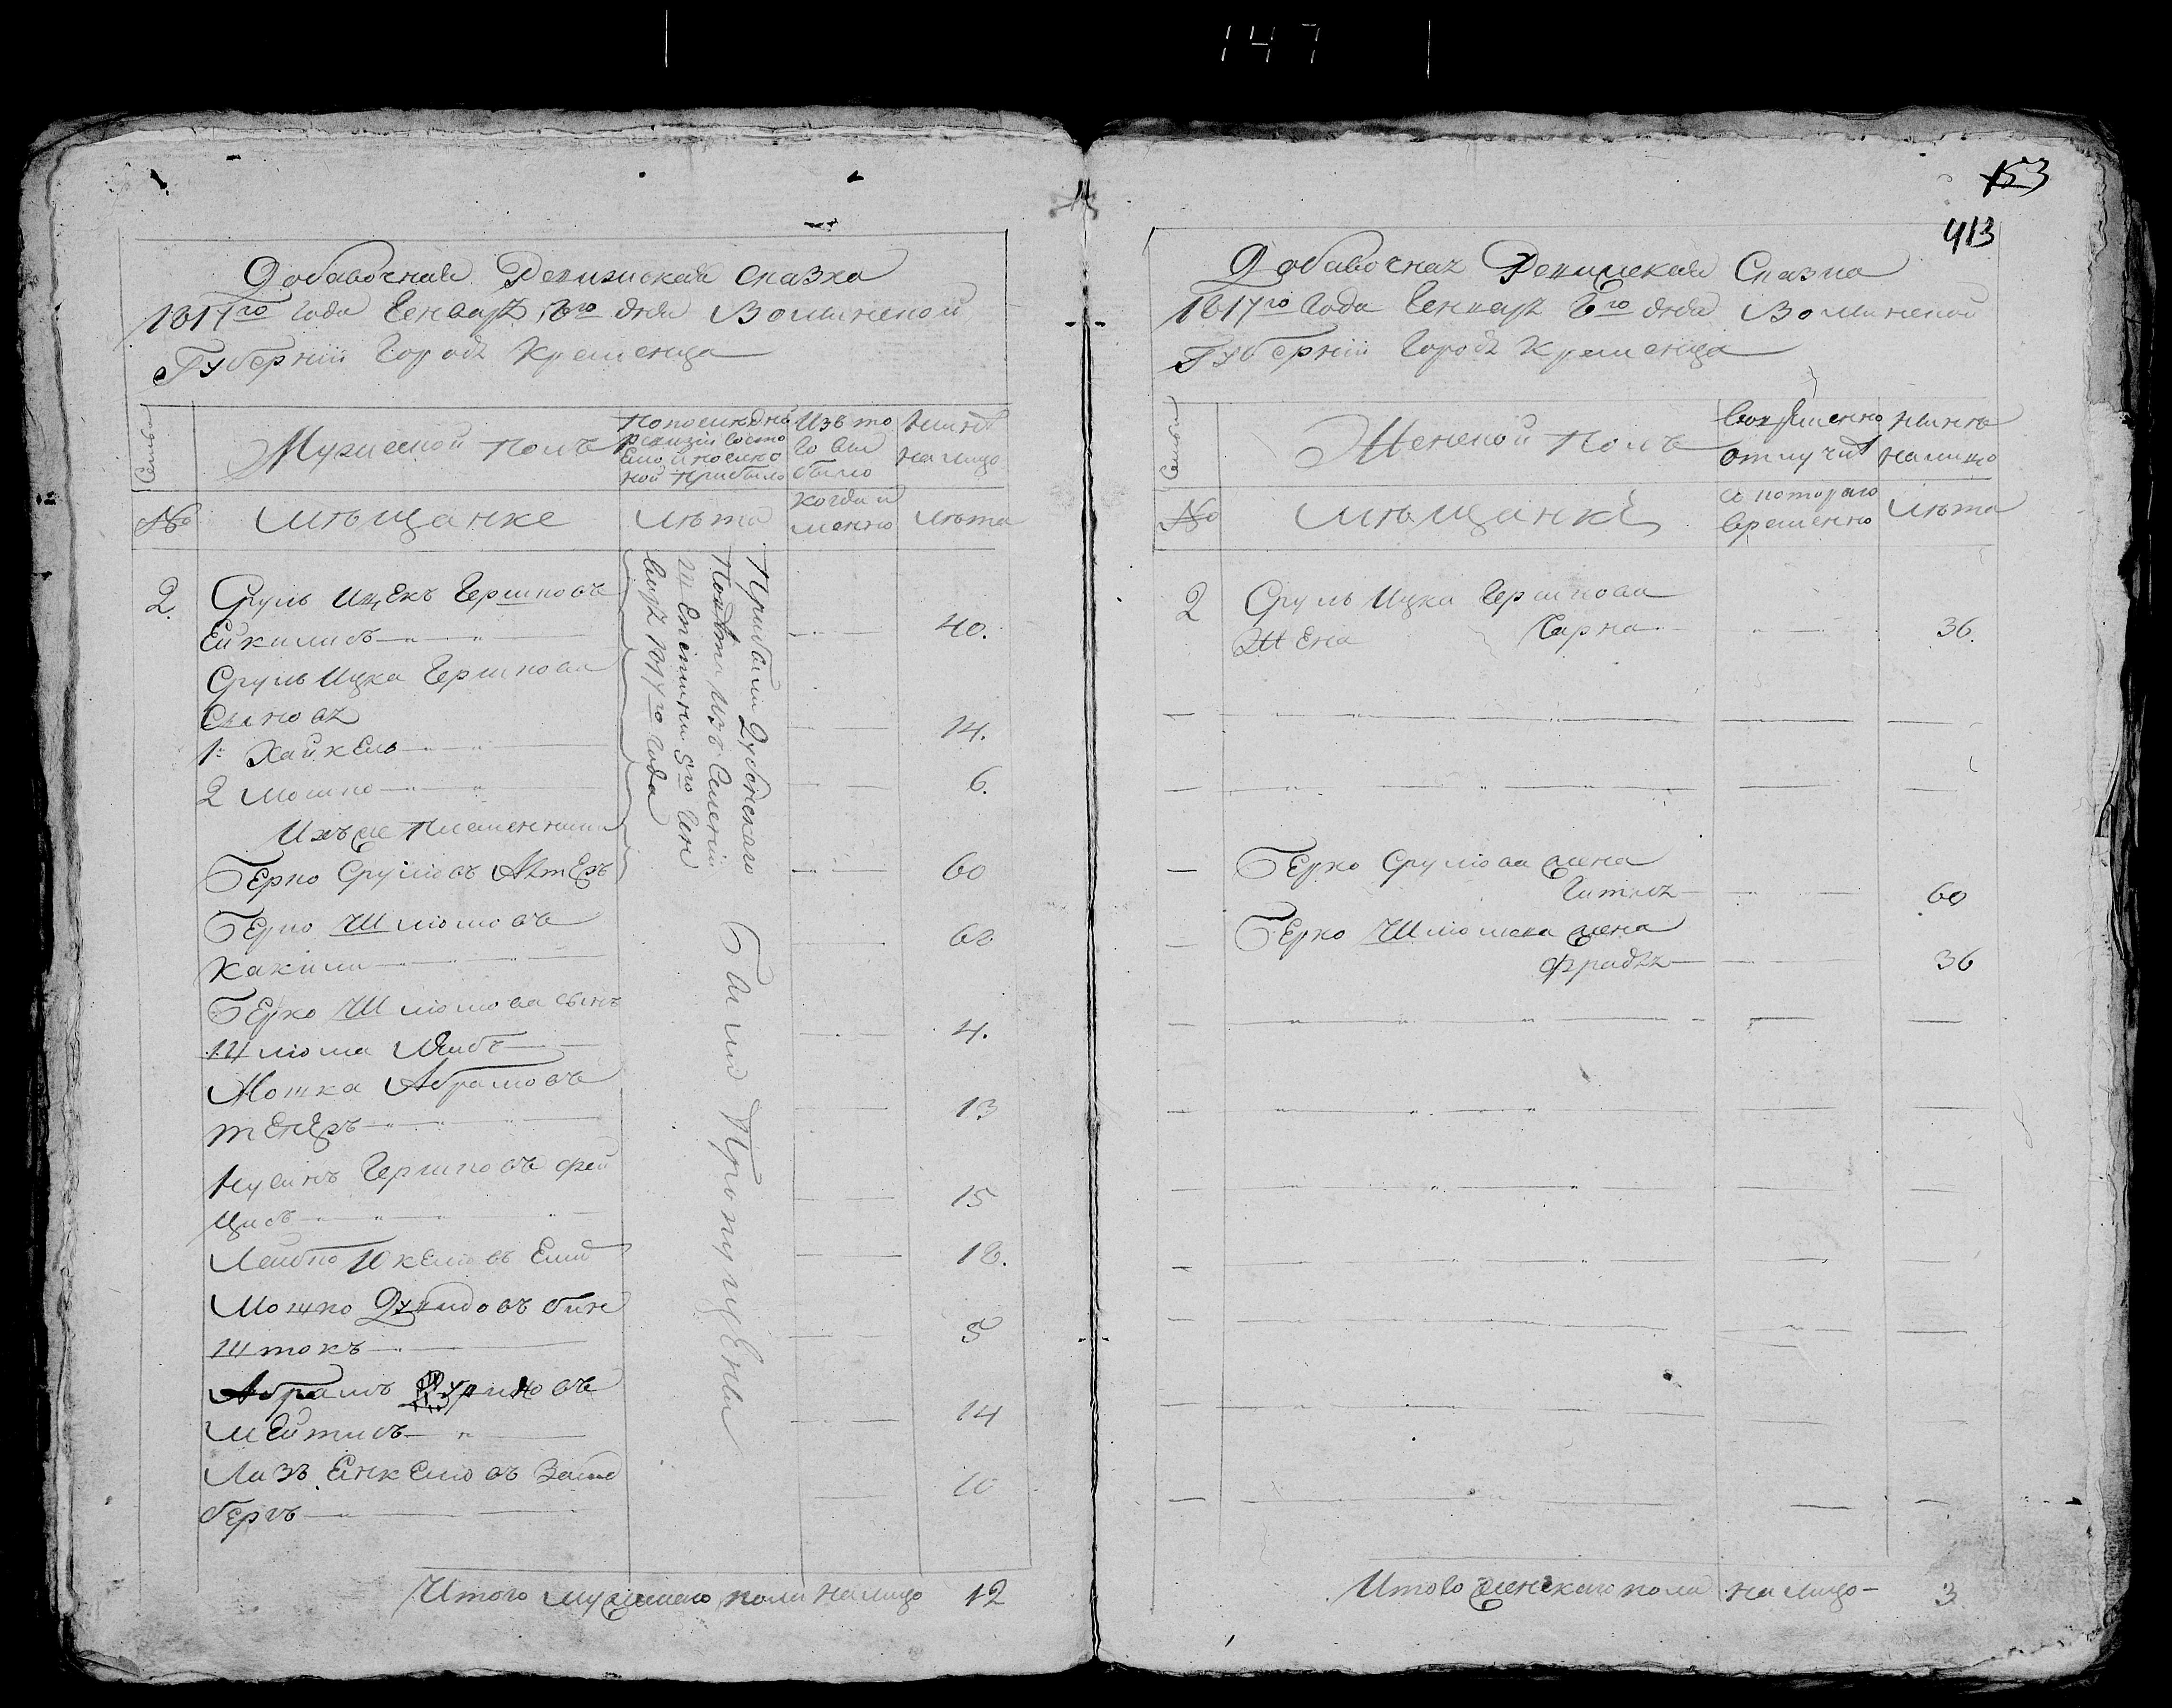 147
Добавочная Ревизская сказка
1817го года Генваря 8го дня Волынской
Губернiи Города Кременца
Семьи
Мужеской полъ
По последней
ревизiи состо
яло и после о
ной прибыло
Изъ то
го вы
было
Ныне
на лицо
№
мещанке
лета
когда и
менно
лета
2.
Сруль Ицекъ Гершковъ
Ейкилисъ
40.
Сруль Ицка Гершкова
Сыновя
1. Хайкель
14.
2 Мошко
6.
Ихъ же племянники
Берко Срулiовъ Актеръ
60
Берко Шлiомовъ
Какили
60
Берко Шлiомова сынъ
Шлiома Лейбъ
4.
Мошка Абрамовъ
тенеръ
13
Нусинъ Гершковъ фей
цисъ
15
Лейбко Юкелiовъ Елид
18.
Мошко Дувидовъ бин
штокъ
5
Абрамъ
Мейтисъ
14
Лазъ Янкелiовъ Зайд
беръ
10
Прибыли Дубенскаго
Повета изъ Селенiи
5го Ген
варя 1817го года
Были Пропущены
Итого мужеско пола на лицо 12
153
413
Добавочная Ревизская Сказка
1817го Года Генваря 8го дня Волынской
Губернiи Города Кременца
Семьи
Женской полъ
Во временно
отлучке
Ныне
на лицо
№
мещанки
с котораго
времени
лета
2
Сруль Ицка Гершкова
Жена Сарна
36.
Берко Срулiова жена
Гителя
60
Берко Шлiомова жена
Фрадля
36
Итого женскаго пола на лицо - 3